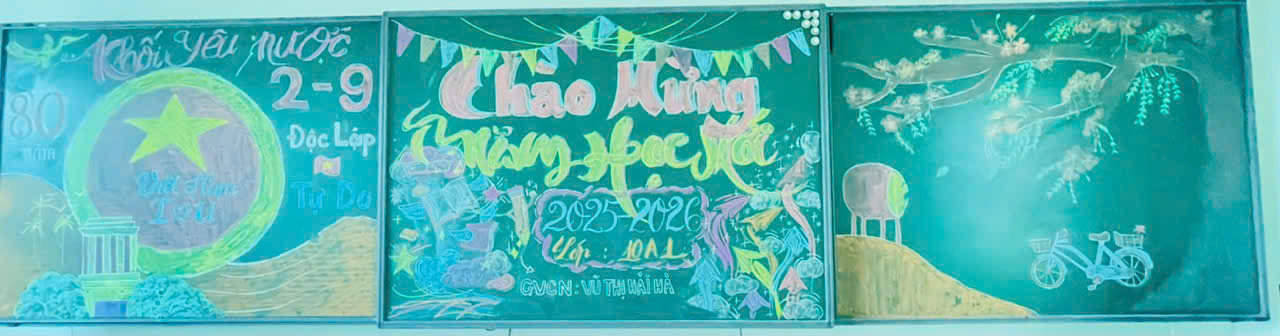 Khối yêu nước
2-9
80
năm
Độc Lập
Tự Do
Việt Nam
I ❤ U
Chào Mừng
Năm Học Mới
2025-2026
Lớp : 10A1
GVCN: VŨ THỊ HẢI HÀ